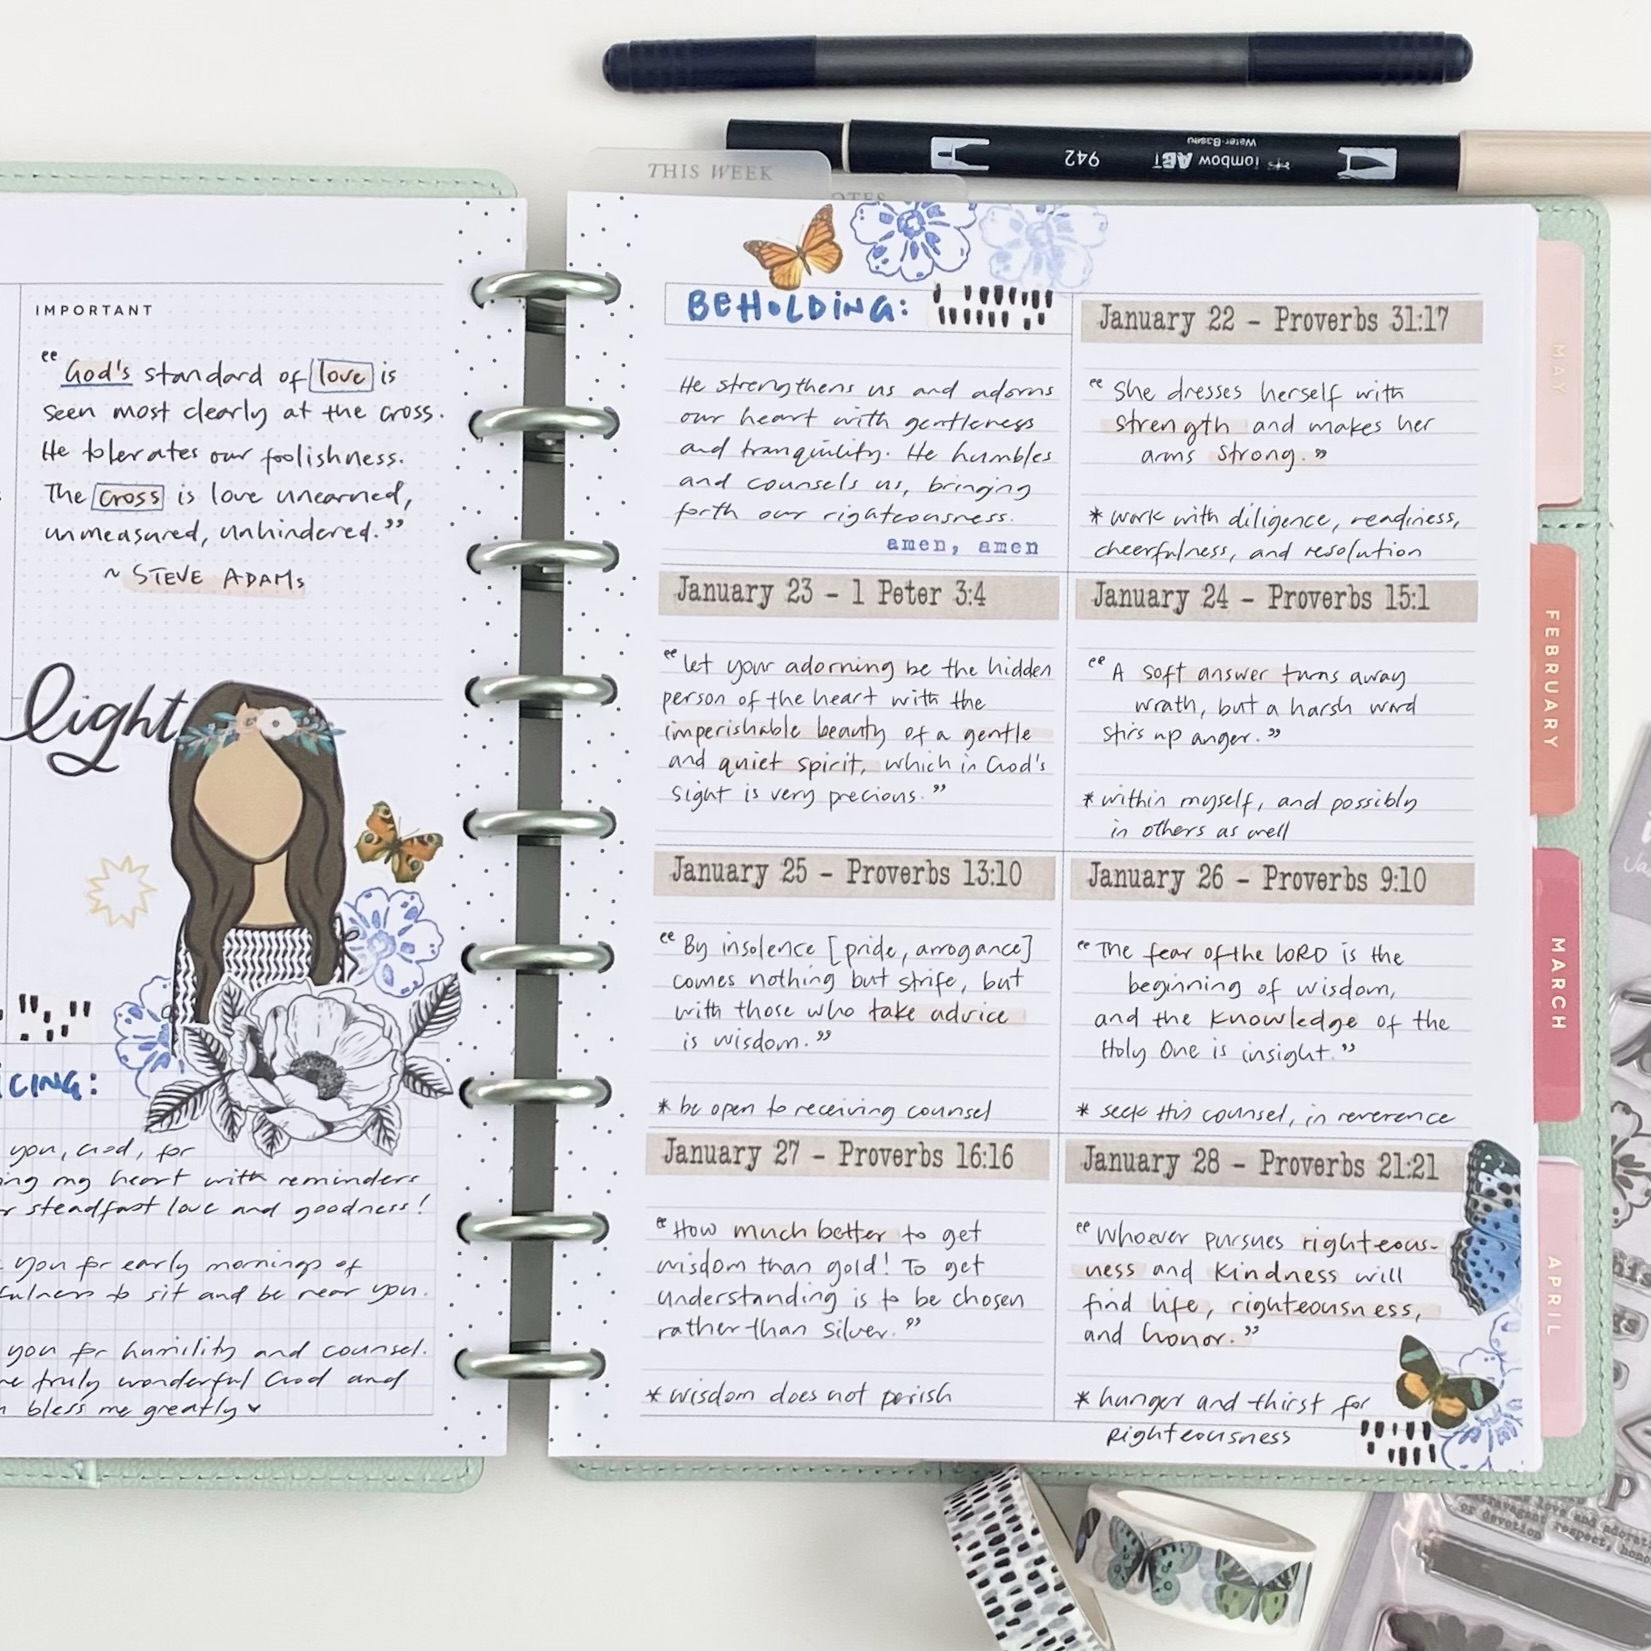 THIS WEEK
NOTES
Tombow ABT
Water-Based
942
IMPORTANT
“God's standard of love is
seen most clearly at the cross.
He tolerates our foolishness.
The cross is love unearned,
unmeasured, unhindered.”
~ STEVE ADAMS
light
CING:
you, God, for
ing my heart with reminders
r steadfast love and goodness!
you for early mornings of
fulness to sit and be near you.
you for humility and counsel.
re truly wonderful God and
h bless me greatly
BEHOLDING:
He strengthens us and adorns
our heart with gentleness
and tranquility. He humbles
and counsels us, bringing
forth our righteousness.
amen, amen
January 22 - Proverbs 31:17
“She dresses herself with
strength and makes her
arms strong.”
* work with diligence, readiness,
cheerfulness, and resolution
January 23 - 1 Peter 3:4
“let your adorning be the hidden
person of the heart with the
imperishable beauty of a gentle
and quiet spirit, which in God's
sight is very precious.”
January 24 - Proverbs 15:1
“A soft answer turns away
wrath, but a harsh word
stirs up anger.”
* within myself, and possibly
in others as well
January 25 - Proverbs 13:10
“By insolence [pride, arrogance]
comes nothing but strife, but
with those who take advice
is wisdom.”
* be open to receiving counsel
January 26 - Proverbs 9:10
“The fear of the LORD is the
beginning of wisdom,
and the knowledge of the
Holy One is insight.”
* seek His counsel, in reverence
January 27 - Proverbs 16:16
“How much better to get
wisdom than gold! To get
understanding is to be chosen
rather than silver.”
* wisdom does not perish
January 28 - Proverbs 21:21
“Whoever pursues righteous-
ness and kindness will
find life, righteousness,
and honor.”
* hunger and thirst for
righteousness
MAY
FEBRUARY
MARCH
APRIL